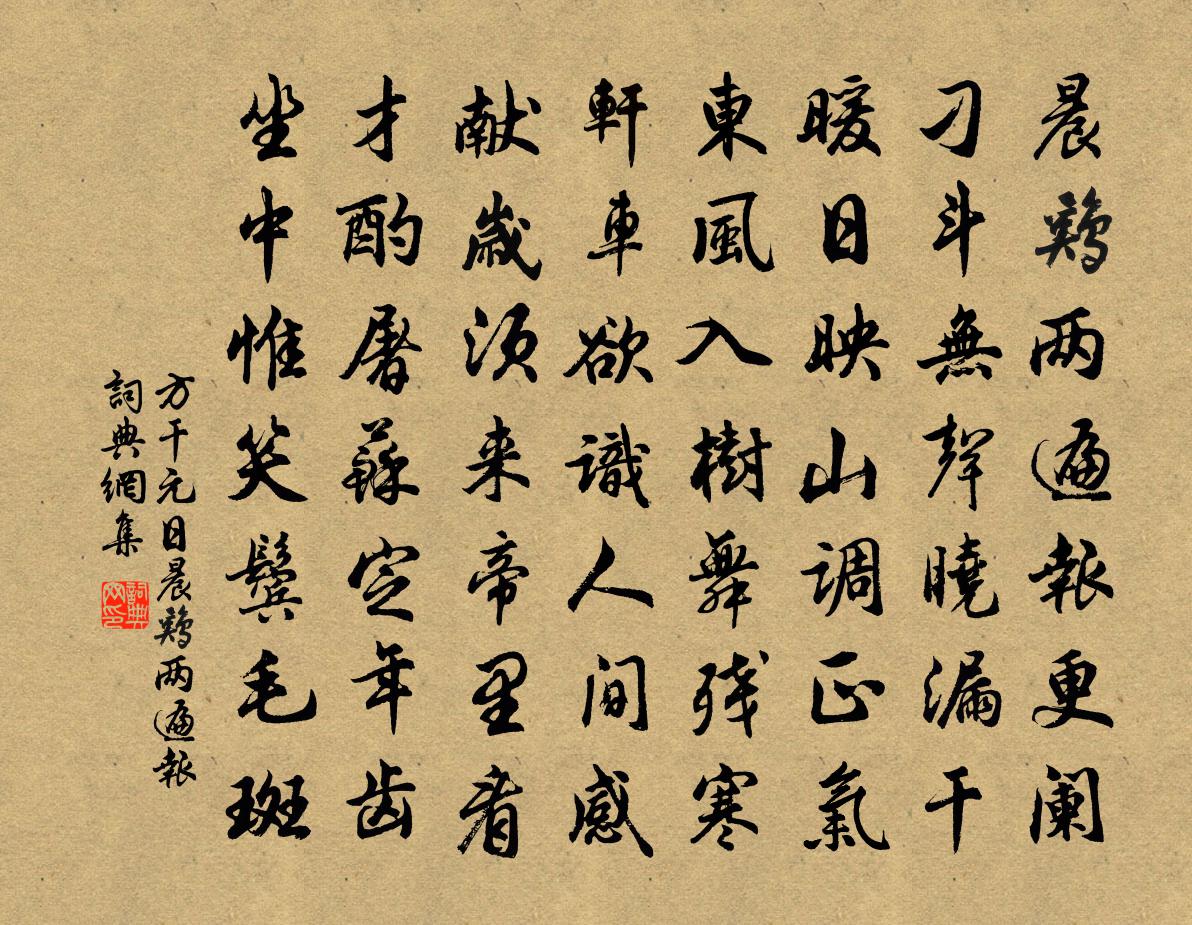 晨鷄两遍報更阑
刁斗無聲曉漏干
暖日映山调正氣
東風入樹舞残寒
軒車欲識人间感
献歳须来帝里看
才酌屠蘇定年齿
坐中惟笑鬓毛斑
方干元日晨鷄两遍報
詞典網集
詞典网印